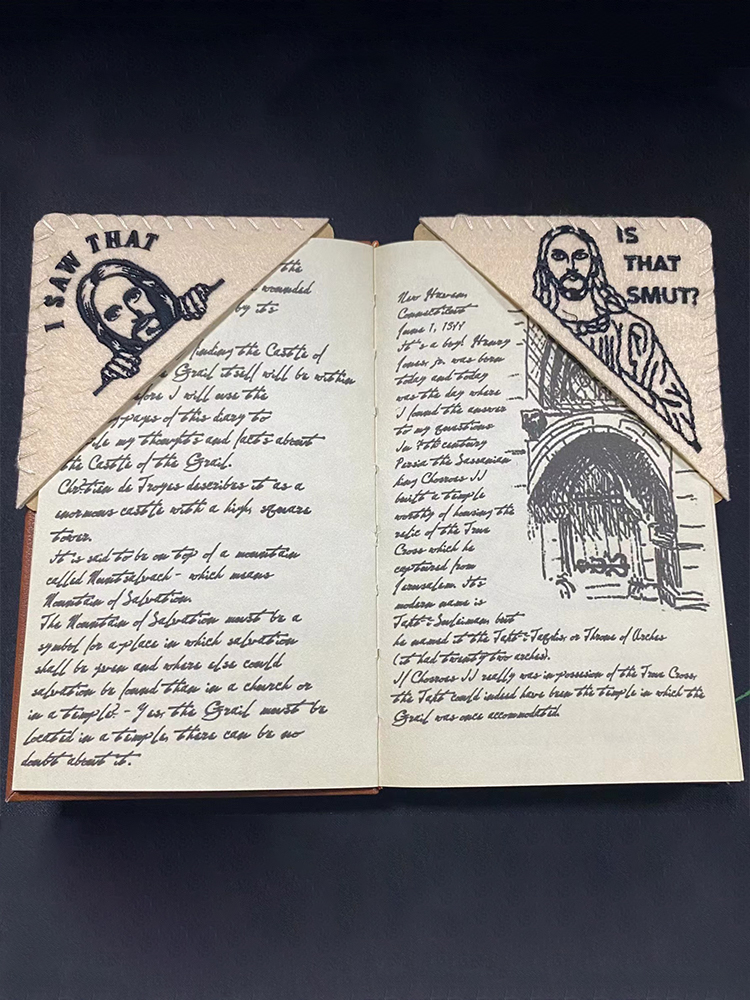 I SAW THAT
the
wounded
by it's
finding the Castle of
Grail itself will be within
before I will use the
pages of this diary to
my thoughts and facts about
the Castle of the Grail.
Chrétien de Troyes describes it as a
enormous castle with a high, square
tower.
It is said to be on top of a mountain
called Muntsalvach - which means
Mountain of Salvation.
The Mountain of Salvation must be a
symbol for a place in which salvation
shall be given and where else could
salvation be found than in a church or
in a temple? - Yes, the Grail must be
located in a temple, there can be no
doubt about it.
IS
THAT
SMUT?
New Haven,
Connecticut
June 1, 1899
It's a boy! Henry
Jones, jr. was born
today and today
was the day where
I found the answer
to my questions
In 7th century
Persia the Sassanian
king Chosroes II
built a temple
worthy of housing the
relic of the True
Cross which he
captured from
Jerusalem. Its
modern name is
Takt-i-Suleiman but
he named it the Takt-i-Taqdis, or Throne of Arches
(it had twenty two arches).
If Chosroes II really was in possesion of the True Cross,
the Takt could indeed have been the temple in which the
Grail was once accommodated.